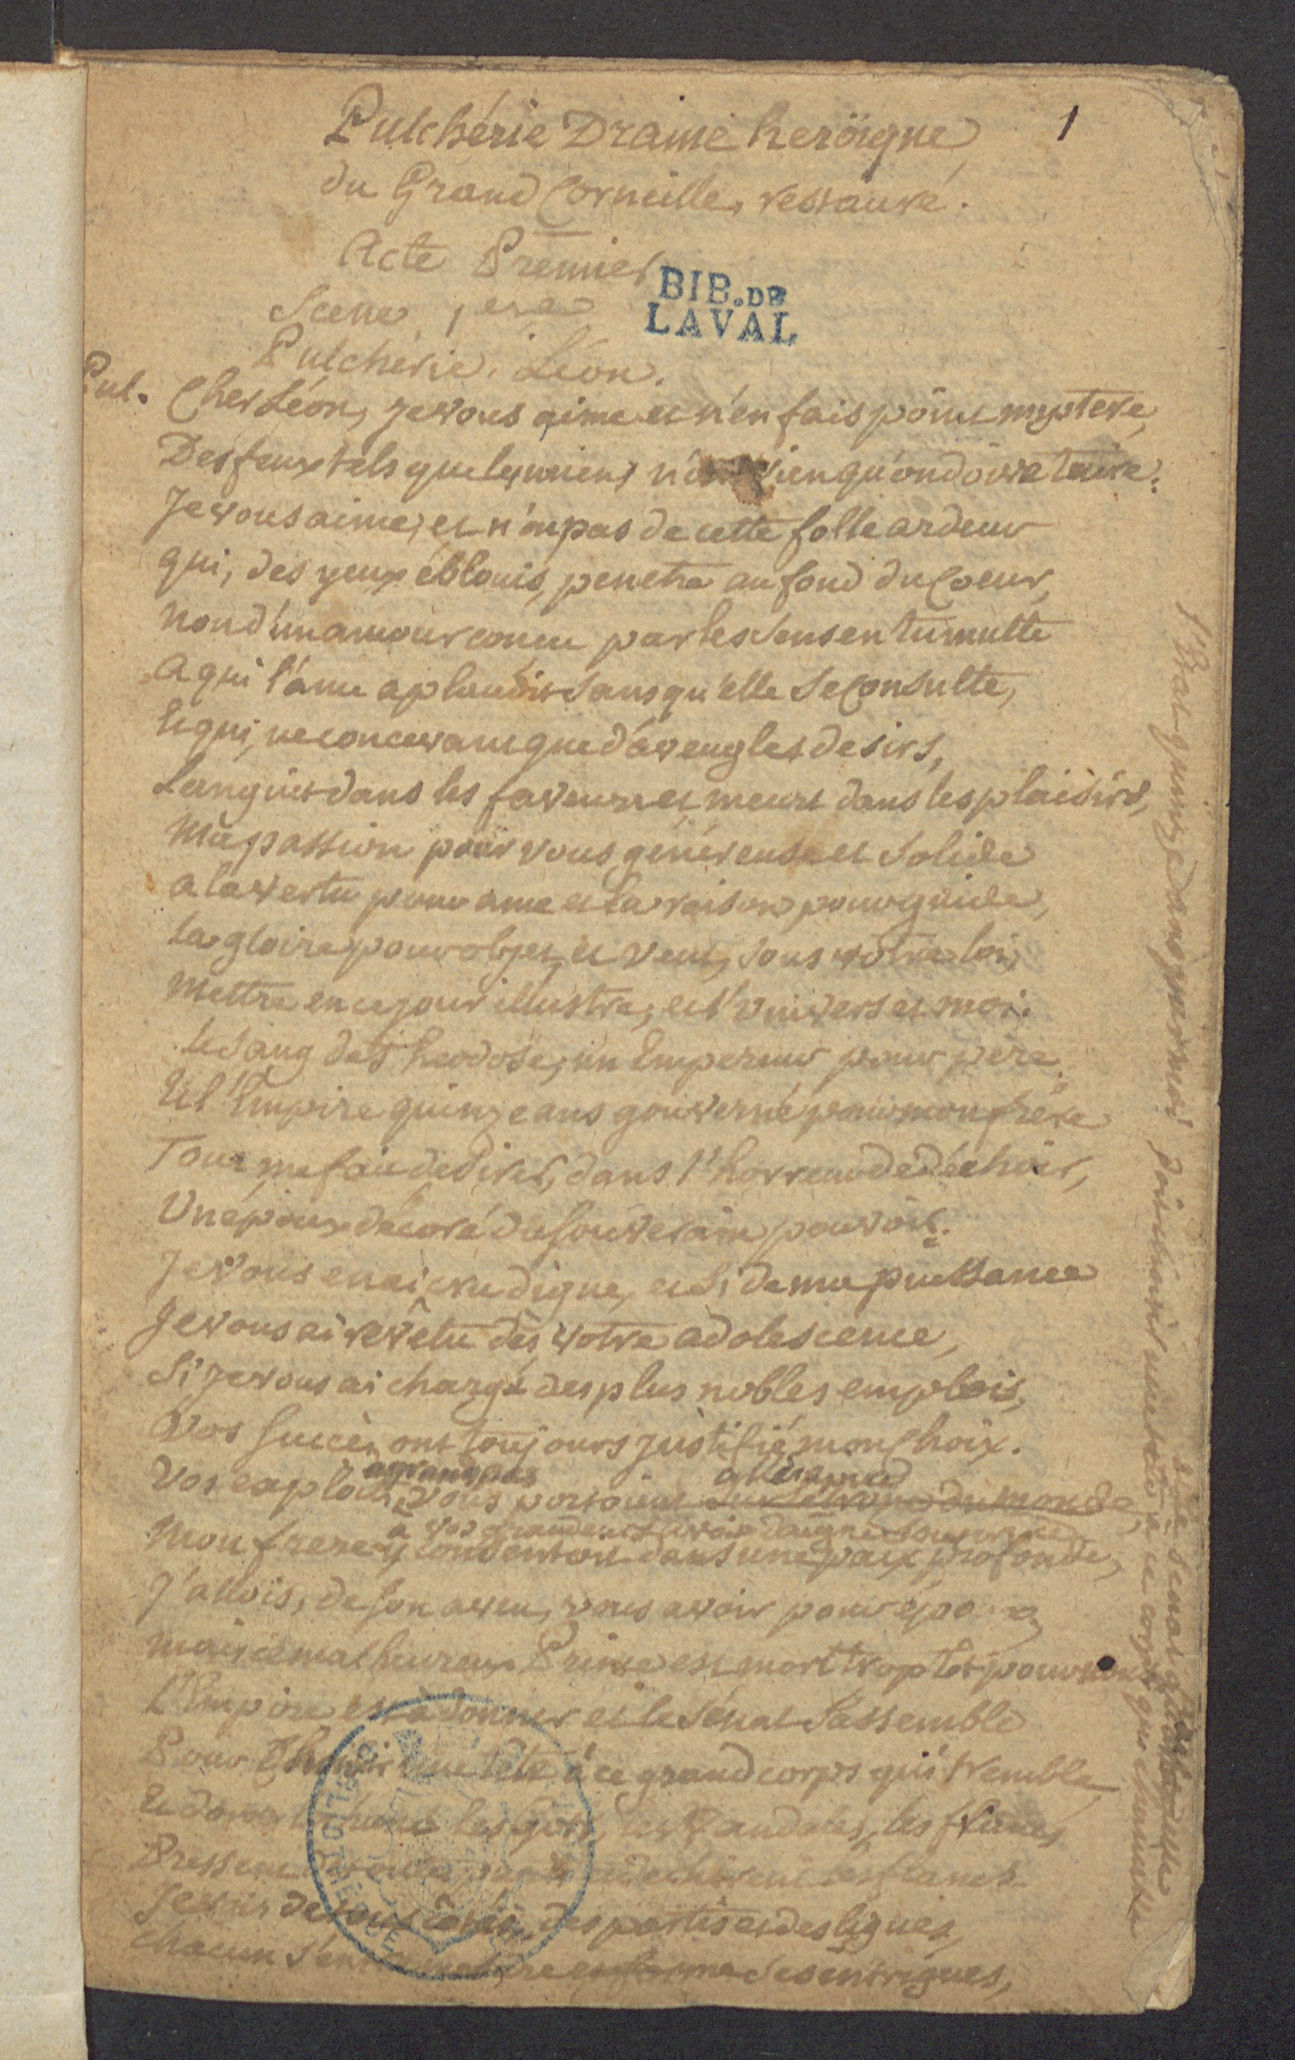 1
Pulchérie Drame heröique
du Grand Corneille, restauré.
Acte Premier
Scene 1ere
BIB. DE
LAVAL
Pulchérie, Léon.
Pul. Cher Léon, je vous aime et n'en fais point mystere,
Des feux tels que les miens n'ont rien qu'on doive taire.
Je vous aime, et n'on pas de cette folle ardeur
qui, des yeux éblouis, penetre au fond du Coeur,
Non d'un amour concu par les sens en tumulte
A qui l'âme aplaudit sans qu'elle se Consulte,
Et qui, ne concevant que d'aveugles desirs,
Languit dans les faveurs et meurt dans les plaisirs,
Ma passion pour vous généreuse et solide
a la vertu pour ame et la raison pour guide,
La gloire pour objet et veut, sous votre loi,
Mettre en ce jour illustre, et l'univers et moi.
Le sang de Theodose, un Empereur pour pere
Et l'Empire quinze ans gouverné pour mon frére
Tout me fait desirer, dans l'horreur de déchoir,
Un époux décoré du souverain pouvoir.
Je vous en ai cru digne, et si de ma puissance
Je vous ai revêtu dès votre adolescence,
Si je vous ai chargé des plus nobles emplois,
Vos succès ont toujours justifié mon Choix.
a grand pas
Vos exploits vous portoient sur le trone du monde,
à vos grandeurs avoir daigné
Mon frere y consentoit dans une paix profonde,
J'allois, de son aveu, vous avoir pour époux
Mais ce malheureux Prince est mort trop tôt pour
L'Empire est à donner et le Sénat s'assemble
Pour choisir une tête à ce grand corps qui tremble
Et dont les huns les Gots, les Vandales, les francs
Je vois de tous côtés des partis et des ligues,
chacun s'entre mesure et forme ses intrigues,
l'Etat quinze ans par moi
doit choisir une tête a ce corps qui chancelle
BIBLIOTHEQUE